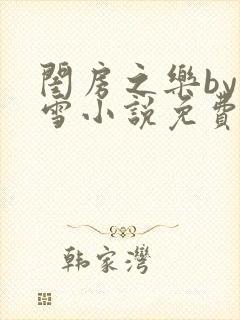 閨房之樂by
雪小說免費
韩家灣